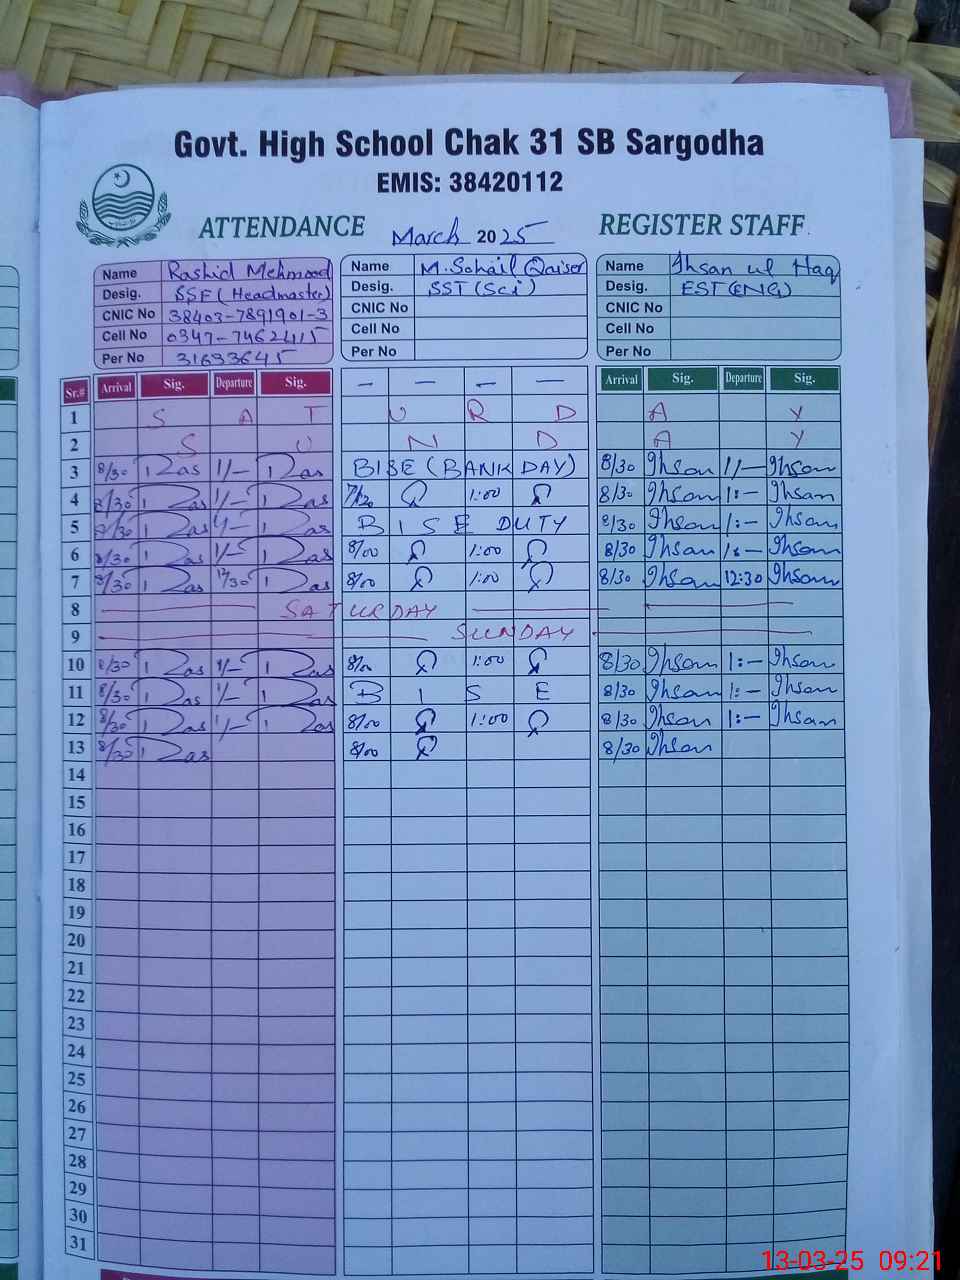 Govt. High School Chak 31 SB Sargodha
EMIS: 38420112
ATTENDANCE March 2025 REGISTER STAFF
Name Rashid Mehmood Name M. Sohail Qaiser Name Ihsan ul Haq
Desig. SSE (Headmaster) Desig. SST (Sci) Desig. EST (ENG)
CNIC No 38403-7891901-3 CNIC No CNIC No
Cell No 0347-7462415 Cell No Cell No
Per No 31633645 Per No Per No
Sr.# Arrival Sig. Departure Sig. — — — — Arrival Sig. Departure Sig.
1 S A T U R D A Y
2 S U N D A Y
3 8/30 1/— BISE (BANK DAY) 8/30 Ihsan 1/— Ihsan
4 8/30 1/— 7/20 1:00 8/30 Ihsan 1:— Ihsan
5 8/30 1/— BISE DUTY 8/30 Ihsan 1:— Ihsan
6 8/30 1/— 8/00 1:00 8/30 Ihsan 1:— Ihsan
7 8/30 12/30 8/00 1:00 8/30 Ihsan 12:30 Ihsan
8 SATURDAY
9 SUNDAY
10 8/30 1/— 1:00 8/30 Ihsan 1:— Ihsan
11 8/30 1/— B I S E 8/30 Ihsan 1:— Ihsan
12 8/30 1/— 8/00 1:00 8/30 Ihsan 1:— Ihsan
13 8/30 8/00 8/30 Ihsan
14
15
16
17
18
19
20
21
22
23
24
25
26
27
28
29
30
31
13-03-25 09:21